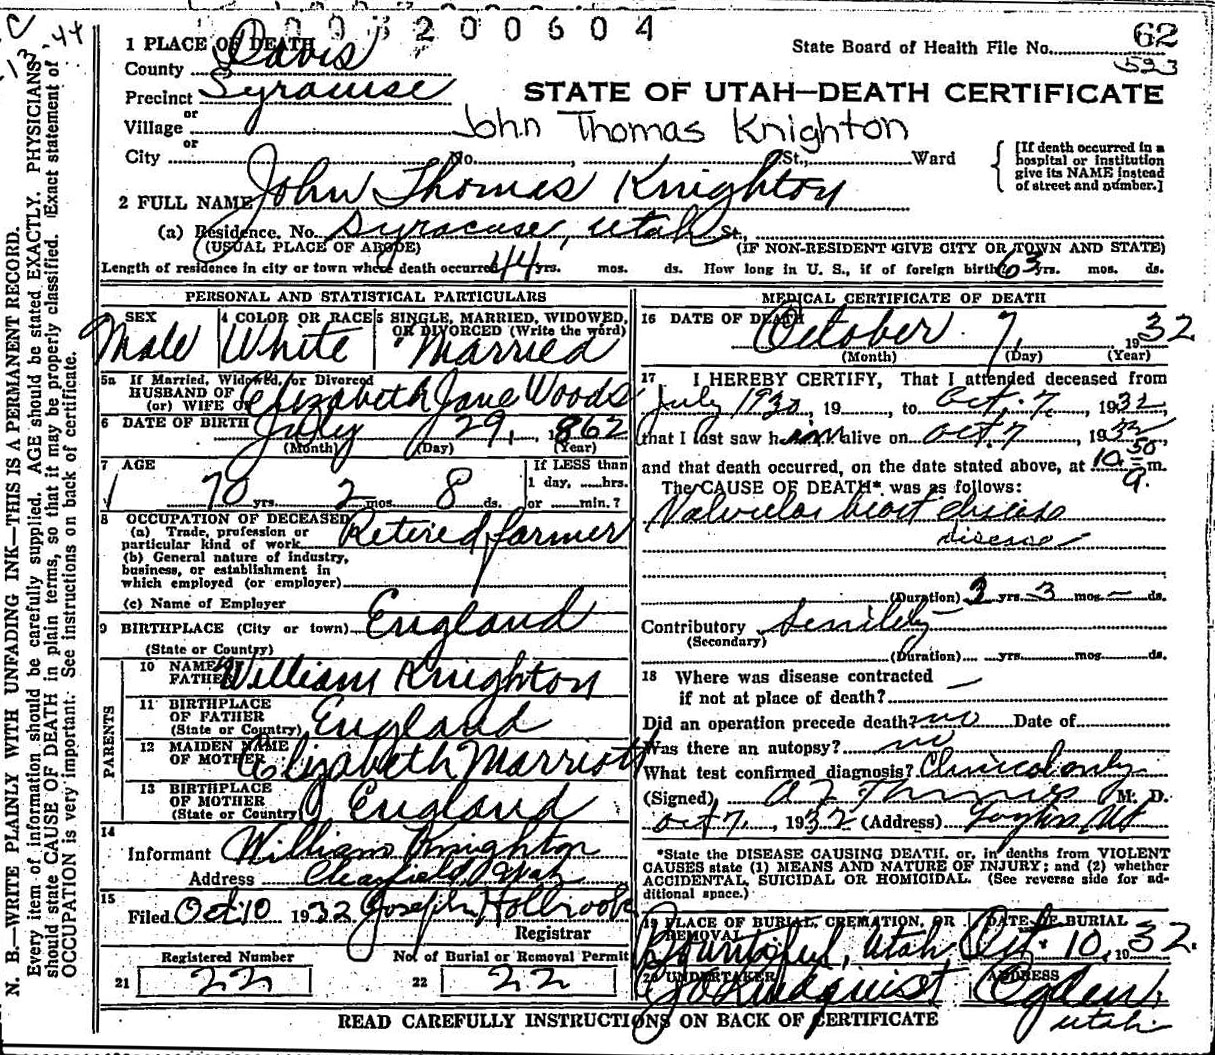 0 0 3 2 0 0 6 0 4
1 PLACE OF DEATH
County Davis
Precinct Syracuse
or
Village
or
City No. St., Ward
State Board of Health File No. 62
523
STATE OF UTAH—DEATH CERTIFICATE
John Thomas Knighton
[If death occurred in a
hospital or institution
give its NAME instead
of street and number.]
2 FULL NAME John Thomas Knighton
(a) Residence. No. Syracuse, Utah St.,
(USUAL PLACE OF ABODE) (IF NON-RESIDENT GIVE CITY OR TOWN AND STATE)
Length of residence in city or town where death occurred 44 yrs. mos. ds. How long in U. S., if of foreign birth? 63 yrs. mos. ds.
PERSONAL AND STATISTICAL PARTICULARS
SEX
Male
4 COLOR OR RACE
White
5 SINGLE, MARRIED, WIDOWED,
OR DIVORCED (Write the word)
Married
5a If Married, Widowed, or Divorced
HUSBAND OF
(or) WIFE OF Elizabeth Jane Woods
6 DATE OF BIRTH July 29, 1862
(Month) (Day) (Year)
7 AGE
70 yrs. 2 mos. 8 ds.
If LESS than
1 day, ......hrs.
or ......min.?
8 OCCUPATION OF DECEASED
(a) Trade, profession or
particular kind of work Retired farmer
(b) General nature of industry,
business, or establishment in
which employed (or employer)
(c) Name of Employer
9 BIRTHPLACE (City or town) England
(State or Country)
PARENTS
10 NAME OF
FATHER William Knighton
11 BIRTHPLACE
OF FATHER
(State or Country) England
12 MAIDEN NAME
OF MOTHER Elizabeth Marriott
13 BIRTHPLACE
OF MOTHER
(State or Country) England
14
Informant William Knighton
Address Clearfield Utah
15
Filed Oct 10 1932 Joseph Holbrook
Registrar
Registered Number No. of Burial or Removal Permit
21 22 22 22
MEDICAL CERTIFICATE OF DEATH
16 DATE OF DEATH
October 7, 1932
(Month) (Day) (Year)
17 I HEREBY CERTIFY, That I attended deceased from
July 1930, 19, to Oct. 7, 1932,
that I last saw him alive on Oct. 7, 1932
and that death occurred, on the date stated above, at 10 50 m.
a.
The CAUSE OF DEATH* was as follows:
Valvular heart disease
disease
(Duration) 2 yrs. 3 mos. — ds.
Contributory Senility
(Secondary)
(Duration) yrs. mos. ds.
18 Where was disease contracted
if not at place of death? —
Did an operation precede death? no Date of
Was there an autopsy? no
What test confirmed diagnosis? Clinical only
(Signed) M. D.
Oct 7, 1932 (Address) Layton, Ut
*State the DISEASE CAUSING DEATH, or, in deaths from VIOLENT
CAUSES state (1) MEANS AND NATURE OF INJURY; and (2) whether
ACCIDENTAL, SUICIDAL OR HOMICIDAL. (See reverse side for ad-
ditional space.)
19 PLACE OF BURIAL, CREMATION, OR
REMOVAL
Bountiful, Utah
DATE OF BURIAL
Oct. 10, 1932.
20 UNDERTAKER
Lindquist
ADDRESS
Ogden,
Utah
READ CAREFULLY INSTRUCTIONS ON BACK OF CERTIFICATE
N. B.—WRITE PLAINLY WITH UNFADING INK—THIS IS A PERMANENT RECORD.
Every item of information should be carefully supplied. AGE should be stated EXACTLY. PHYSICIANS
should state CAUSE OF DEATH in plain terms, so that it may be properly classified. Exact statement of
OCCUPATION is very important. See instructions on back of certificate.